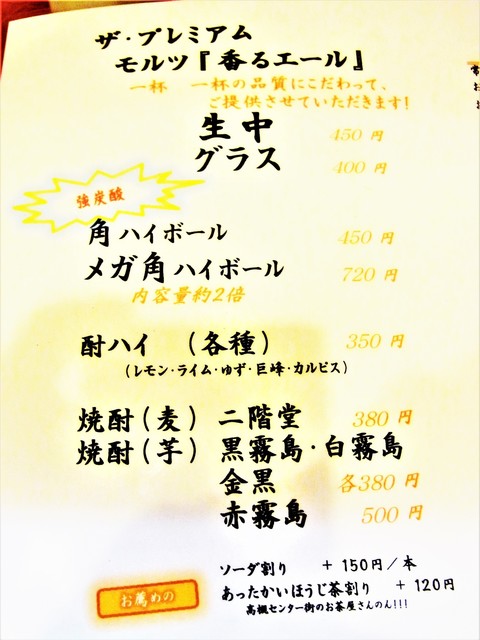 ザ・プレミアム
モルツ『香るエール』
一杯 一杯の品質にこだわって、
ご提供させていただきます!
生中 450円
グラス 400円
強炭酸
角ハイボール 450円
メガ角ハイボール 720円
内容量約2倍
酎ハイ (各種) 350円
(レモン・ライム・ゆず・巨峰・カルピス)
焼酎(麦) 二階堂 380円
焼酎(芋) 黒霧島・白霧島
金黒 各380円
赤霧島 500円
ソーダ割り +150円/本
お薦めの あったかいほうじ茶割り +120円
高槻センター街のお茶屋さんのん!!!